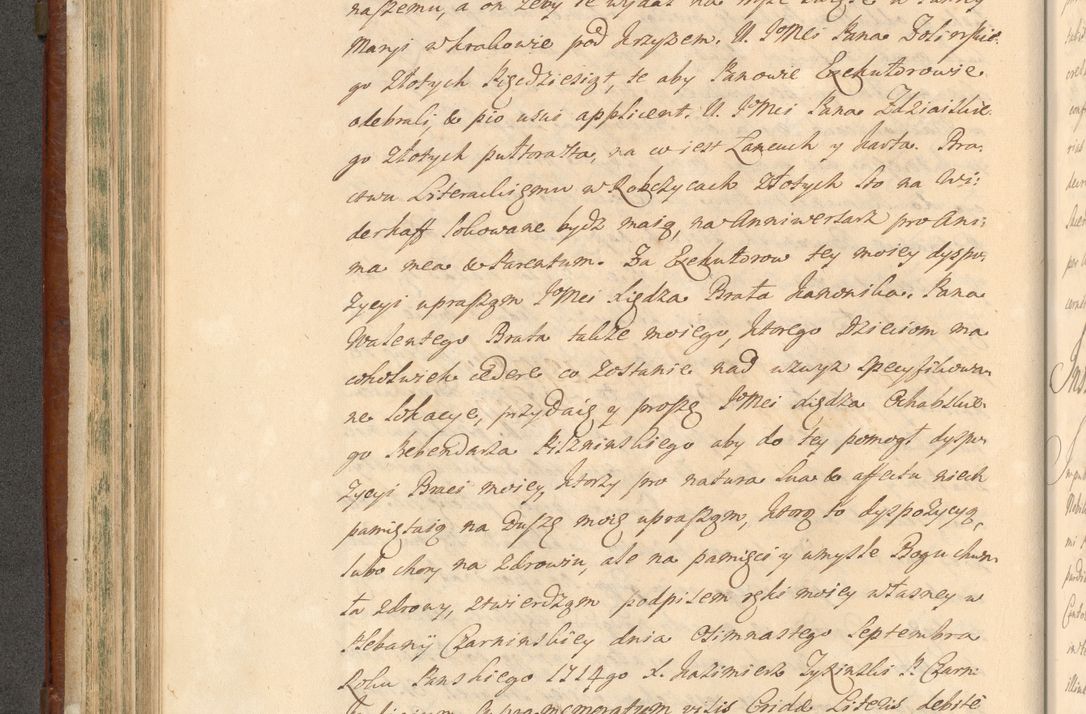 naszemu, a on żeby te wydał na
Maryi w Krakowie pod Krzyżem. U JoMci Pana Zolinskie-
go Złotych Pięcdziesiąt, te aby Panowie Exekutorowie
odebrali, & pio usui applicent. U JoMci Pana Zdziaiskie-
go Złotych pułtorasta, na co iest Łancuch y karta. Bra-
ctwu Literackiemu w Robczycach Złotych sto na Wi-
derkaff lokowane bydz maią, na Anniwersarz pro Ani-
ma mea & Parentum. Za Exekutorow tey moiey dyspo-
zycyi upraszam JoMci Xiędza Brata Kanonika. Pana
Walentego Brata także moiego, ktorego Dzieciom ma
cokolwiek cedere co zostanie nad wzwyz specyfikowa-
ne lokacye, przydaię y proszę JoMci Xiędza Ochabskie-
go Prebendarza Pilzninskiego aby do tey pomogł dyspo-
zycyi Braci moiey, ktorzy pro natura sua & affectu niech
pamiętaią na Duszę moię upraszam, ktorą to dyspozycyą,
lubo chory na zdrowiu, ale na pamięci y umysle Bogu chwa-
ła zdrowy, ztwierdzam podpisem ręki moiey własney w
Plebanij Czarninskiey dnia Osimnastego Septembra
Roku Panskiego 1714go X. Kazimierz Zykinski P. Czarn:
memoratum vitis Cridae Literis debite